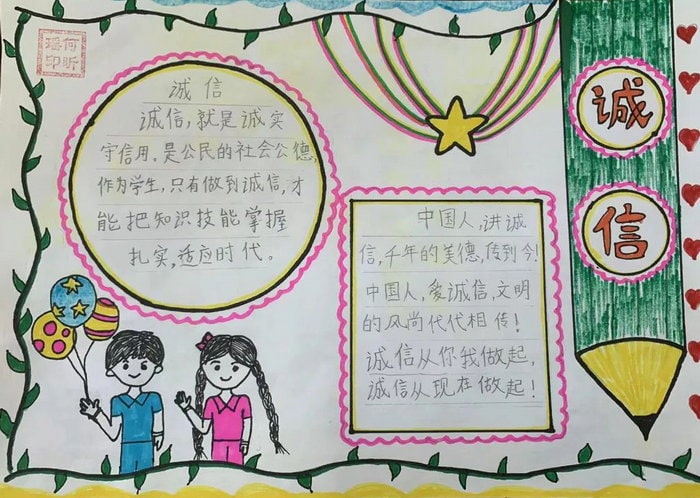 何昕
瑶印
诚信
诚信
诚信，就是诚实
守信用，是公民的社会公德，
作为学生，只有做到诚信，才
能把知识技能掌握
扎实，适应时代。
中国人，讲诚
信，千年的美德，传到今！
中国人，爱诚信，文明
的风尚代代相传！
诚信从你我做起，
诚信从现在做起！